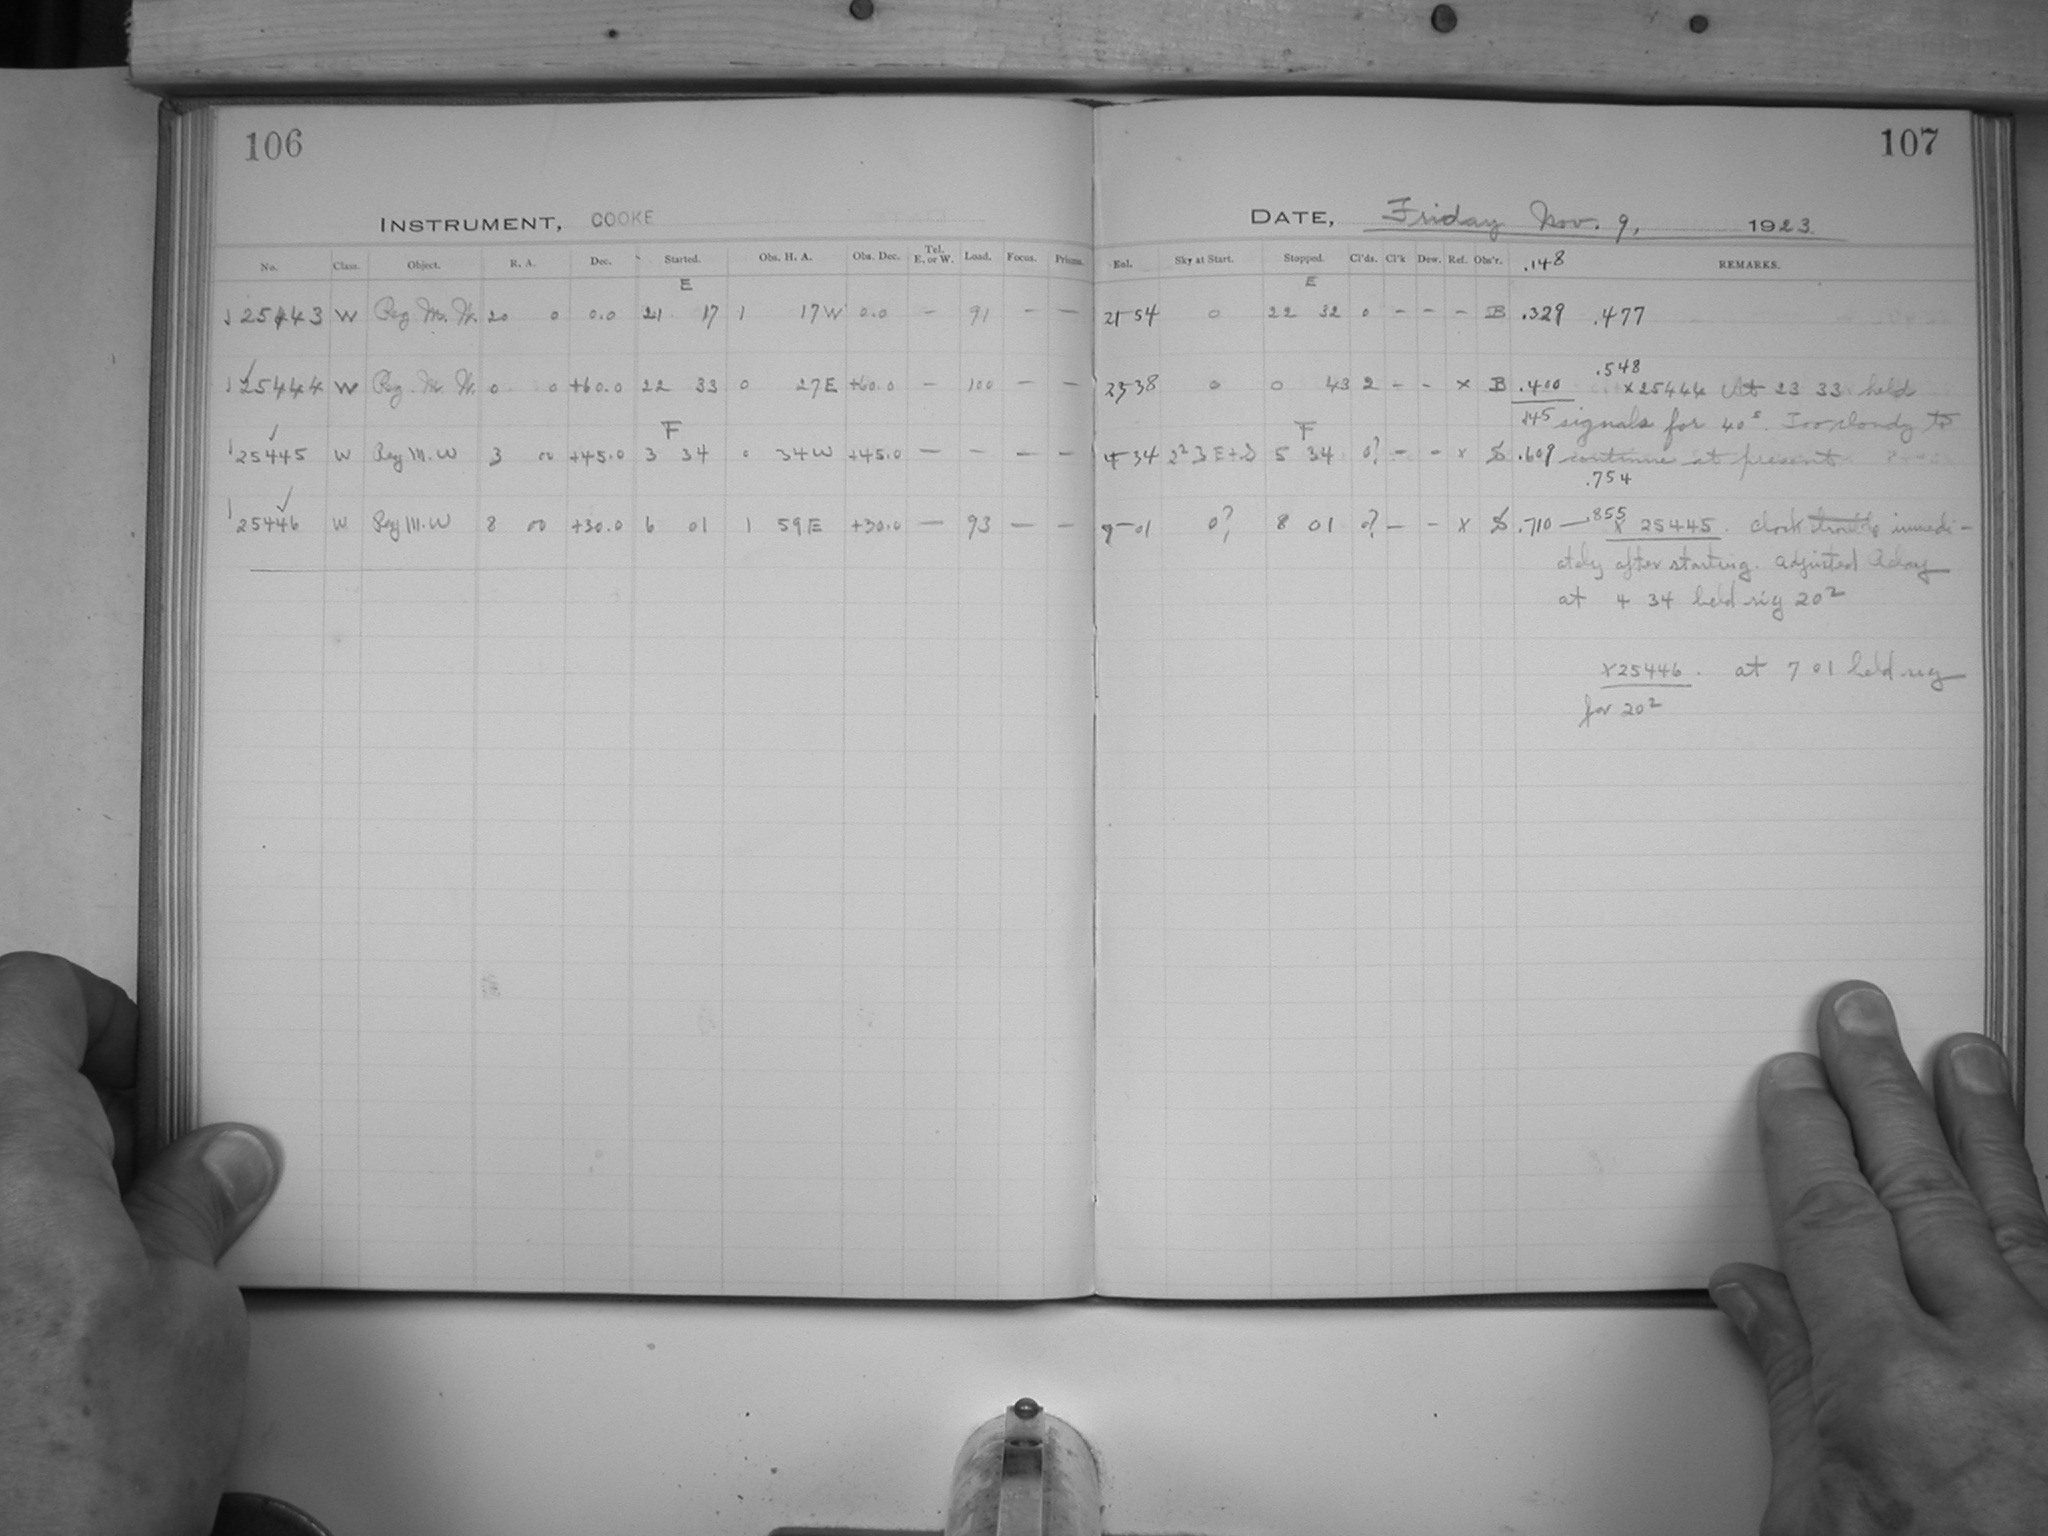 106
107
INSTRUMENT, COOKE
DATE, Friday Nov. 9, 1923
No. Class. Object. R. A. Dec. Started. Obs. H. A. Obs. Dec. Tel. E. or W. Load. Focus. Prisms.
Eol. Sky at Start. Stopped. Cl'ds. Cl'k Dew. Ref. Obs'r. .148 REMARKS.
E
E
25443 W Reg M. W. 20 0 0.0 21 17 1 17W 0.0 — 91 — —
21 54 0 22 32 0 – – – B .329 .477
.548
25444 W Reg. M. W. 0 0 +60.0 22 33 0 27E +60.0 — 100 — —
23 38 0 0 43 2 – – x B .400 x25444 At 23 33 held
.145 signals for 40s. Too cloudy to
F
F
25445 W Reg M.W 3 00 +45.0 3 34 0 34W +45.0 — — — —
4 34 5 34 0? – – x .609 continue at present
.754
25446 W Reg M.W 8 00 +30.0 6 01 1 59E +30.0 — 93 — —
01 0? 8 01 0? – – x .710 — .855
x 25445. Clock trouble immedi-
ately after starting. adjusted
at 4 34 held sig 20²
x25446. at 7 01 held sig
for 20²